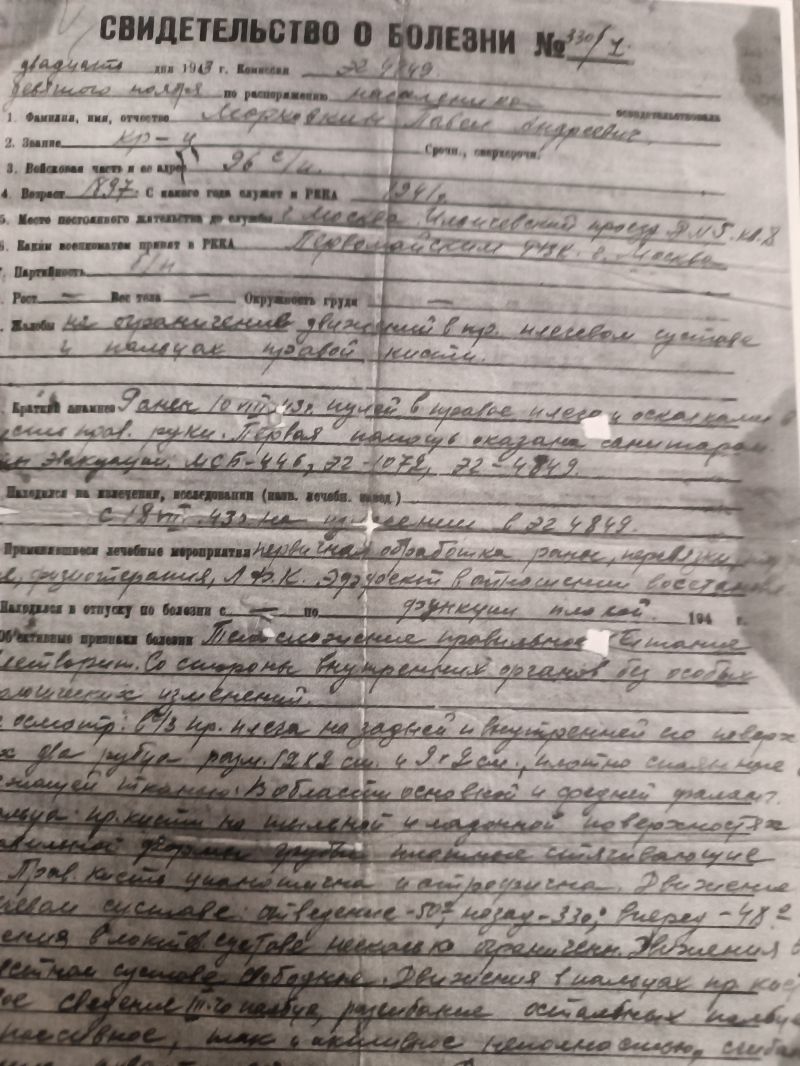 СВИДЕТЕЛЬСТВО О БОЛЕЗНИ № 330/1
двадцать дня 1943 г. Комиссия ЭГ 4849.
девятого ноября по распоряжению начальника освидетельствовала
1. Фамилия, имя, отчество Морковкин Павел Андреевич
2. Звание кр-ц Срочн., сверхсрочн.
3. Войсковая часть и ее адрес 96 с/п.
4. Возраст 1897. С какого года служит в РККА 1941г.
5. Место постоянного жительства до службы г. Москва проезд д №5. кв. 8
6. Каким военкоматом принят в РККА Первомайским г. Москва
7. Партийность б/п
Рост — Вес тела — Окружность груди —
Жалобы на ограничение движений в пр. плечевом суставе
и пальцах правой кисти.
Краткий анамнез Ранен 10 VIII 43г. пулей в правое плечо и осколками в
прав. руки. Первая помощь оказана санитаром
Эвакуация: МСБ-446, ЭГ-1072, ЭГ-4849.
Находился на излечении, исследовании (назв. лечебн. завед.)
с 18 VIII 43г на излечении в ЭГ 4849.
Применявшиеся лечебные мероприятия первичная обработка раны, перевязки,
физиотерапия, ЛФК. Эффект в отношении восстано
Находился в отпуску по болезни с — по функции плохой. 194 г.
Объективные признаки болезни Телосложение правильное. Питание
Со стороны внутренних органов без особых
изменений.
осмотр: в с/3 пр. плеча на задней и внутренней его поверх
два рубца разм. 12х2 см. и 9х2 см., плотно спаянные
тканью. В области основной и средней фаланг.
пр. кисти на тыльной и ладонной поверхностях
формы грубые плотные стягивающие
Прав. кисть цианотична и Движение
суставе: отведение -50°, назад -33°, вперед -48°
в локтев. суставе несколько ограничен. Движения в
суставе свободные. Движения в пальцах пр. кист
сведение III-го пальца, разгибание остальных пальцев
пассивное, так и активное неполностью, сгибан